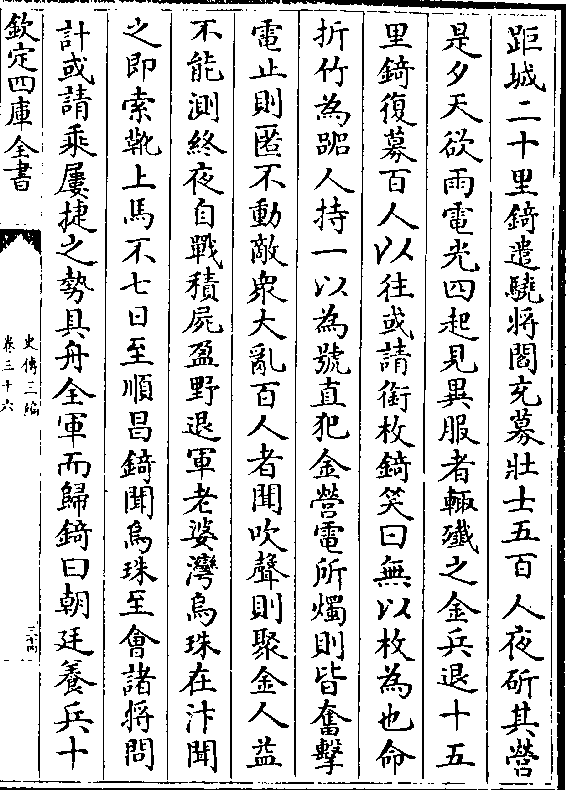 距城二十里錡遣驍將閻充募壯士五百人夜斫其營
是夕天欲雨電光四起見異服者輙殲之金兵退十五
里錡復募百人以往或請銜枚錡笑曰無以枚為也命
折竹為㗅人持一以為號直犯金營電所燭則皆奮擊
電止則匿不動敵衆大亂百人者聞吹聲則聚金人益
不能測終夜自戰積屍盈野退軍老婆灣烏珠在汴聞
之即索靴上馬不七日至順昌錡聞烏珠至會諸將問
計或請乘屢捷之勢具舟全軍而歸錡曰朝廷養兵十
欽定四庫全書
史傳三編
卷三十六
三十四